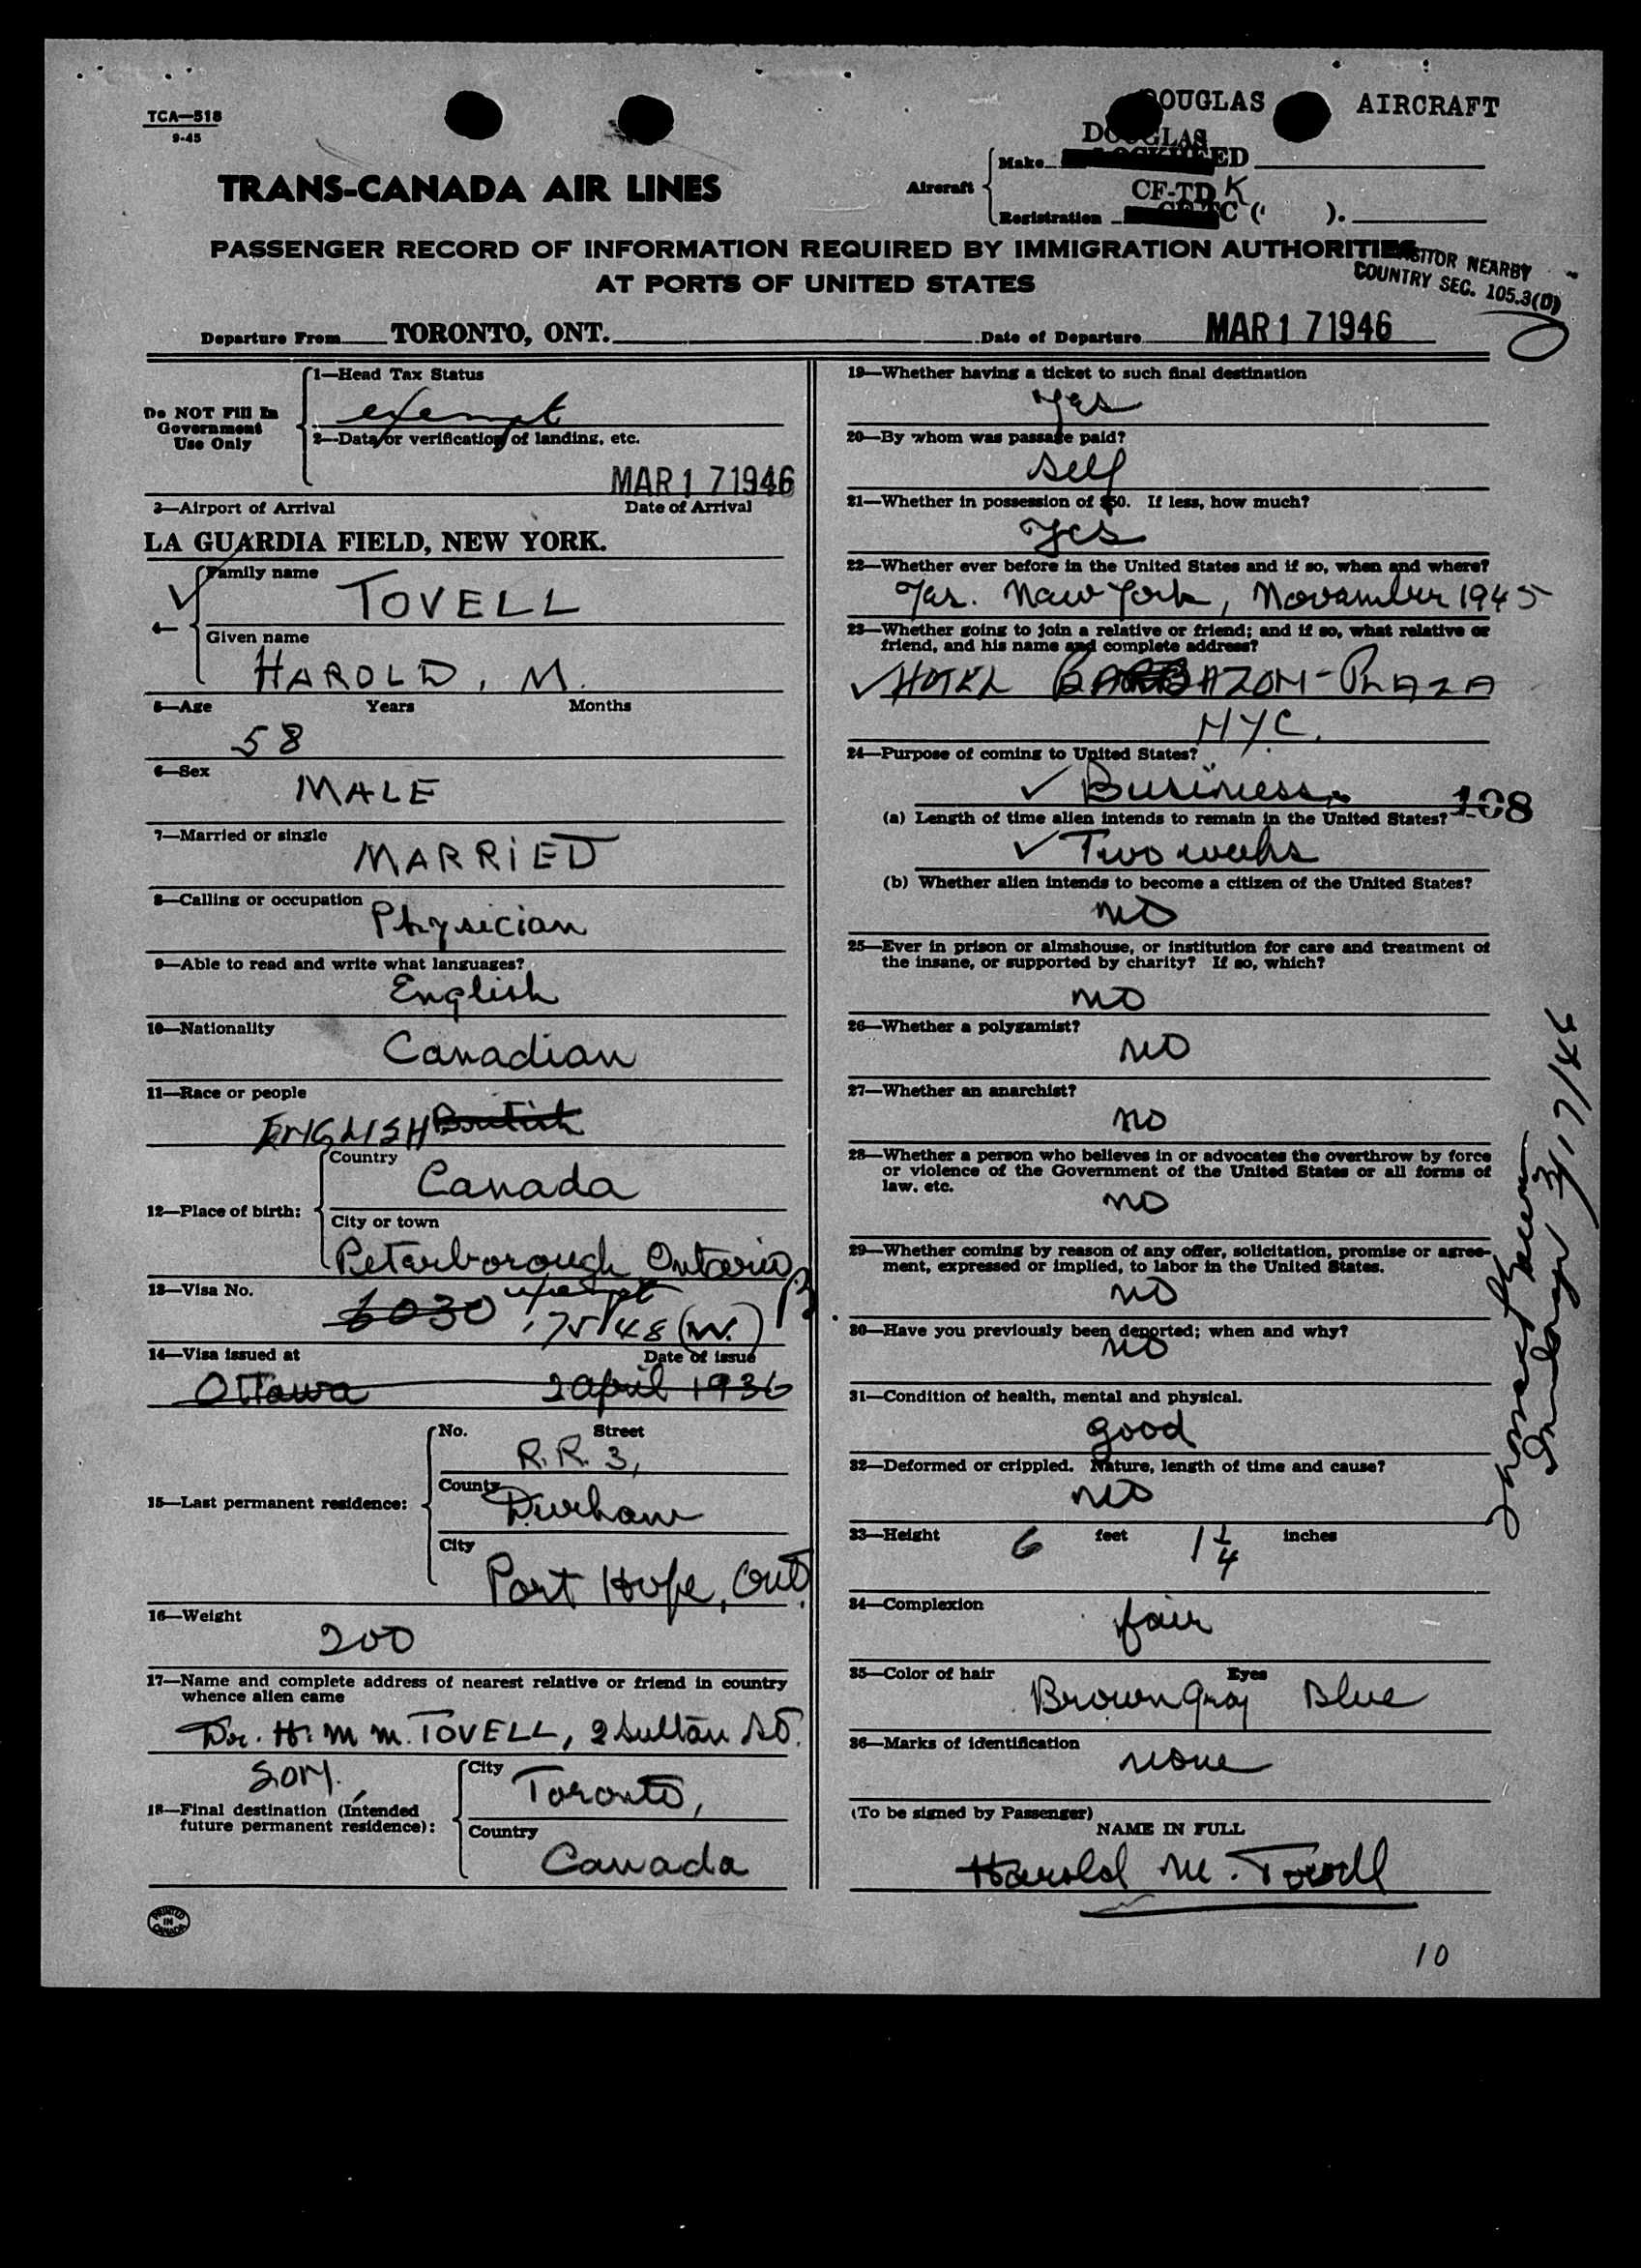 TCA—518
9-45
DOUGLAS AIRCRAFT
DOUGLAS
Make LOCKHEED
TRANS-CANADA AIR LINES
Aircraft
CF-TD K
Registration CF-TC ( ).
PASSENGER RECORD OF INFORMATION REQUIRED BY IMMIGRATION AUTHORITIES
AT PORTS OF UNITED STATES
VISITOR NEARBY
COUNTRY SEC. 105.3(D)
Departure From TORONTO, ONT. Date of Departure MAR 17 1946
Do NOT Fill In
Government
Use Only
1—Head Tax Status
exempt
2—Data or verification of landing, etc.
MAR 17 1946
3—Airport of Arrival Date of Arrival
LA GUARDIA FIELD, NEW YORK.
4—
Family name
TOVELL
Given name
HAROLD, M.
5—Age Years Months
58
6—Sex
MALE
7—Married or single
MARRIED
8—Calling or occupation
Physician
9—Able to read and write what languages?
English
10—Nationality
Canadian
11—Race or people
ENGLISH British
12—Place of birth:
Country
Canada
City or town
Peterborough Ontario
13—Visa No.
6030 exempt
175/48 (W.)
14—Visa issued at Date of issue
Ottawa 2 April 1936
15—Last permanent residence:
No. Street
R.R. 3,
County
Durham
City
Port Hope, Ont.
16—Weight
200
17—Name and complete address of nearest relative or friend in country
whence alien came
Dr. H. M. M. TOVELL, 2 Sultan St.
SON.
18—Final destination (Intended
future permanent residence):
City
Toronto,
Country
Canada
PRINTED
IN
CANADA
19—Whether having a ticket to such final destination
Yes
20—By whom was passage paid?
Self
21—Whether in possession of $50. If less, how much?
Yes
22—Whether ever before in the United States and if so, when and where?
Yes. New York, November 1945
23—Whether going to join a relative or friend; and if so, what relative or
friend, and his name and complete address?
HOTEL BARBAZON-PLAZA
NYC.
24—Purpose of coming to United States?
Business
108
(a) Length of time alien intends to remain in the United States?
Two weeks
(b) Whether alien intends to become a citizen of the United States?
no
25—Ever in prison or almshouse, or institution for care and treatment of
the insane, or supported by charity? If so, which?
no
26—Whether a polygamist?
no
27—Whether an anarchist?
no
28—Whether a person who believes in or advocates the overthrow by force
or violence of the Government of the United States or all forms of
law, etc.
no
29—Whether coming by reason of any offer, solicitation, promise or agree-
ment, expressed or implied, to labor in the United States.
no
30—Have you previously been deported; when and why?
no
31—Condition of health, mental and physical.
good
32—Deformed or crippled. Nature, length of time and cause?
no
33—Height 6 feet 1 1/4 inches
34—Complexion
fair
35—Color of hair Eyes
Brown Gray Blue
36—Marks of identification
none
(To be signed by Passenger)
NAME IN FULL
Harold M. Tovell
3/17/46
10